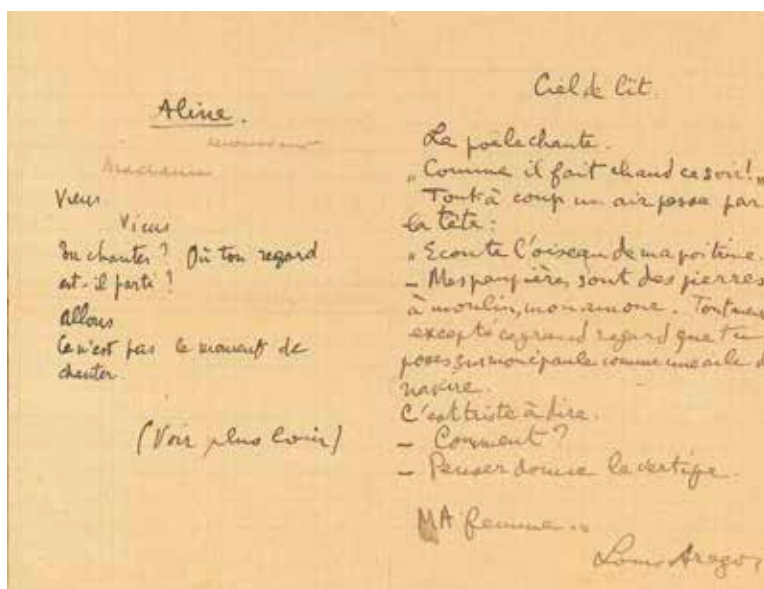 Aline.
Madame
Viens
Viens
Tu chantes? Où ton regard
est-il parti?
Allons
Ce n'est pas le moment de
chanter.
(Voir plus loin)
Ciel de lit.
Le poêle chante.
„Comme il fait chaud ce soir!„
Tout à coup un air passe par
la tête:
„Ecoute l'oiseau de ma poitrine.
— Mes paupières sont des pierres
à moulin, mon amone. Tout
excepté ce grand regard que tu
poses sur mon épaule comme une aile d
navire.
C'est triste à dire.
— Comment?
— Penser donne le vertige.
MA femme...
Louis Aragon